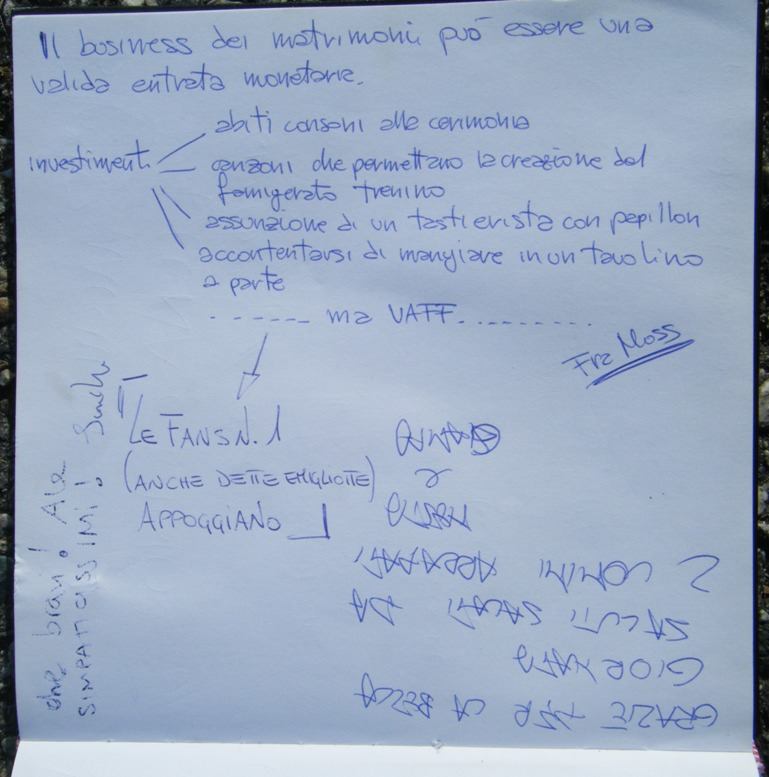 Il business dei matrimoni può essere una
valida entrata monetaria.
investimenti
abiti consoni alla cerimonia
canzoni che permettano la creazione del
famigerato trenino
assunzione di un tastierista con pepillon
accontentarsi di mangiare in un tavolino
a parte
------ ma VAFF..........
Fra Moss
LE FANS N. 1
(ANCHE DETTE EMIGLIOTTE)
APPOGGIANO
che bravi! Ale
SIMPATICISSIMI!
GRAZIE PER LA BELLA
GIORNATA
SALUTI SALATI DA
2 UOMINI ARRAPATI
&